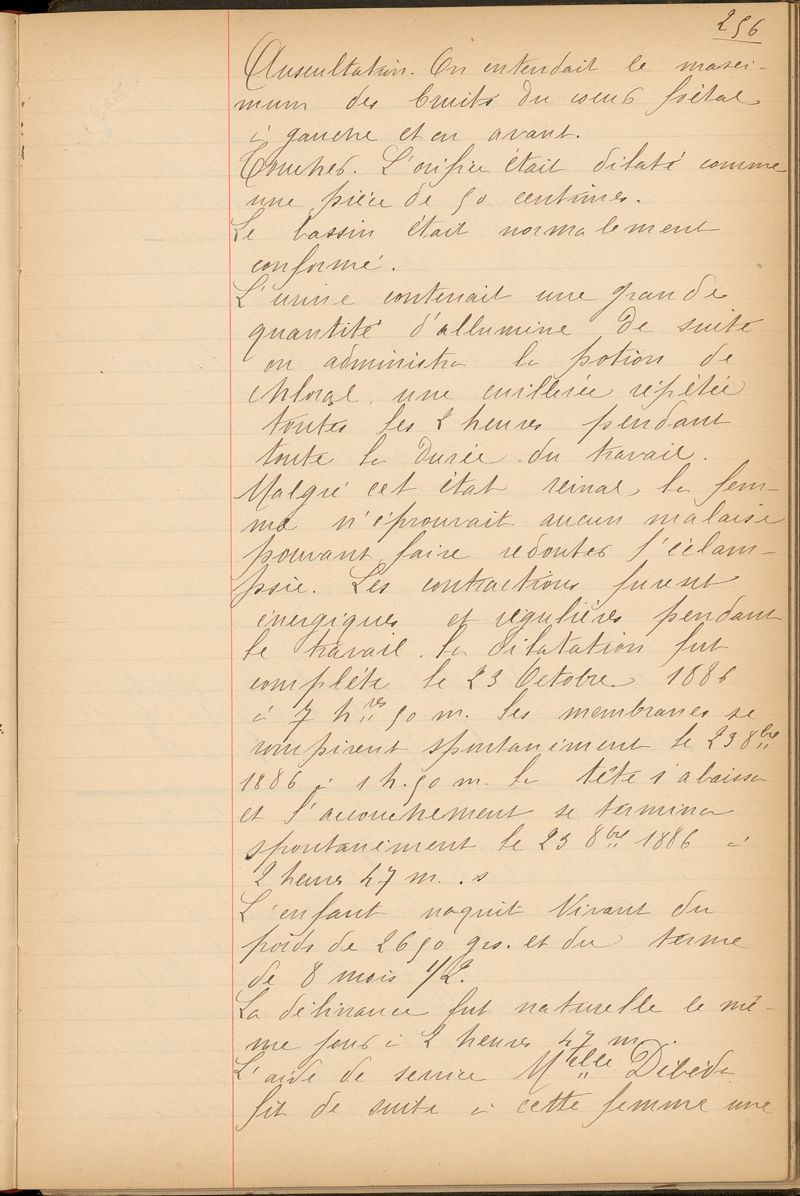 256
Auscultation. On entendait le maxi-
mum des bruits du cœur fœtal
à gauche et en avant.
Toucher. L'orifice était dilaté comme
une pièce de 50 centimes.
Le bassin était normalement
conformé.
L'urine contenait une grande
quantité d'allumine de suite
on administra la potion de
chloral, une cuillerée répétée
toutes les 2 heures pendant
toute la durée du travail.
Malgré cet état reinal la fem-
me n'éprouvait aucun malaise
pouvant faire redouter l'éclam-
psie. Les contractions furent
énergiques et régulières pendant
le travail. la dilatation fut
complète le 23 Octobre 1886
à 7 hres 50 m. les membranes se
rompirent spontanément le 23 8bre
1886 à 1 h. 50 m. la tête s'abaissa
et l'accouchement se termina
spontanément le 23 8bre 1886 à
2 heures 47 m. s
L'enfant naquit Vivant du
poids de 2650 grs. et du terme
de 8 mois 1/2.
La délivrance fut naturelle le mê-
me jour à 2 heures 47 m.
L'aide de service Melle Débède
fit de suite à cette femme une